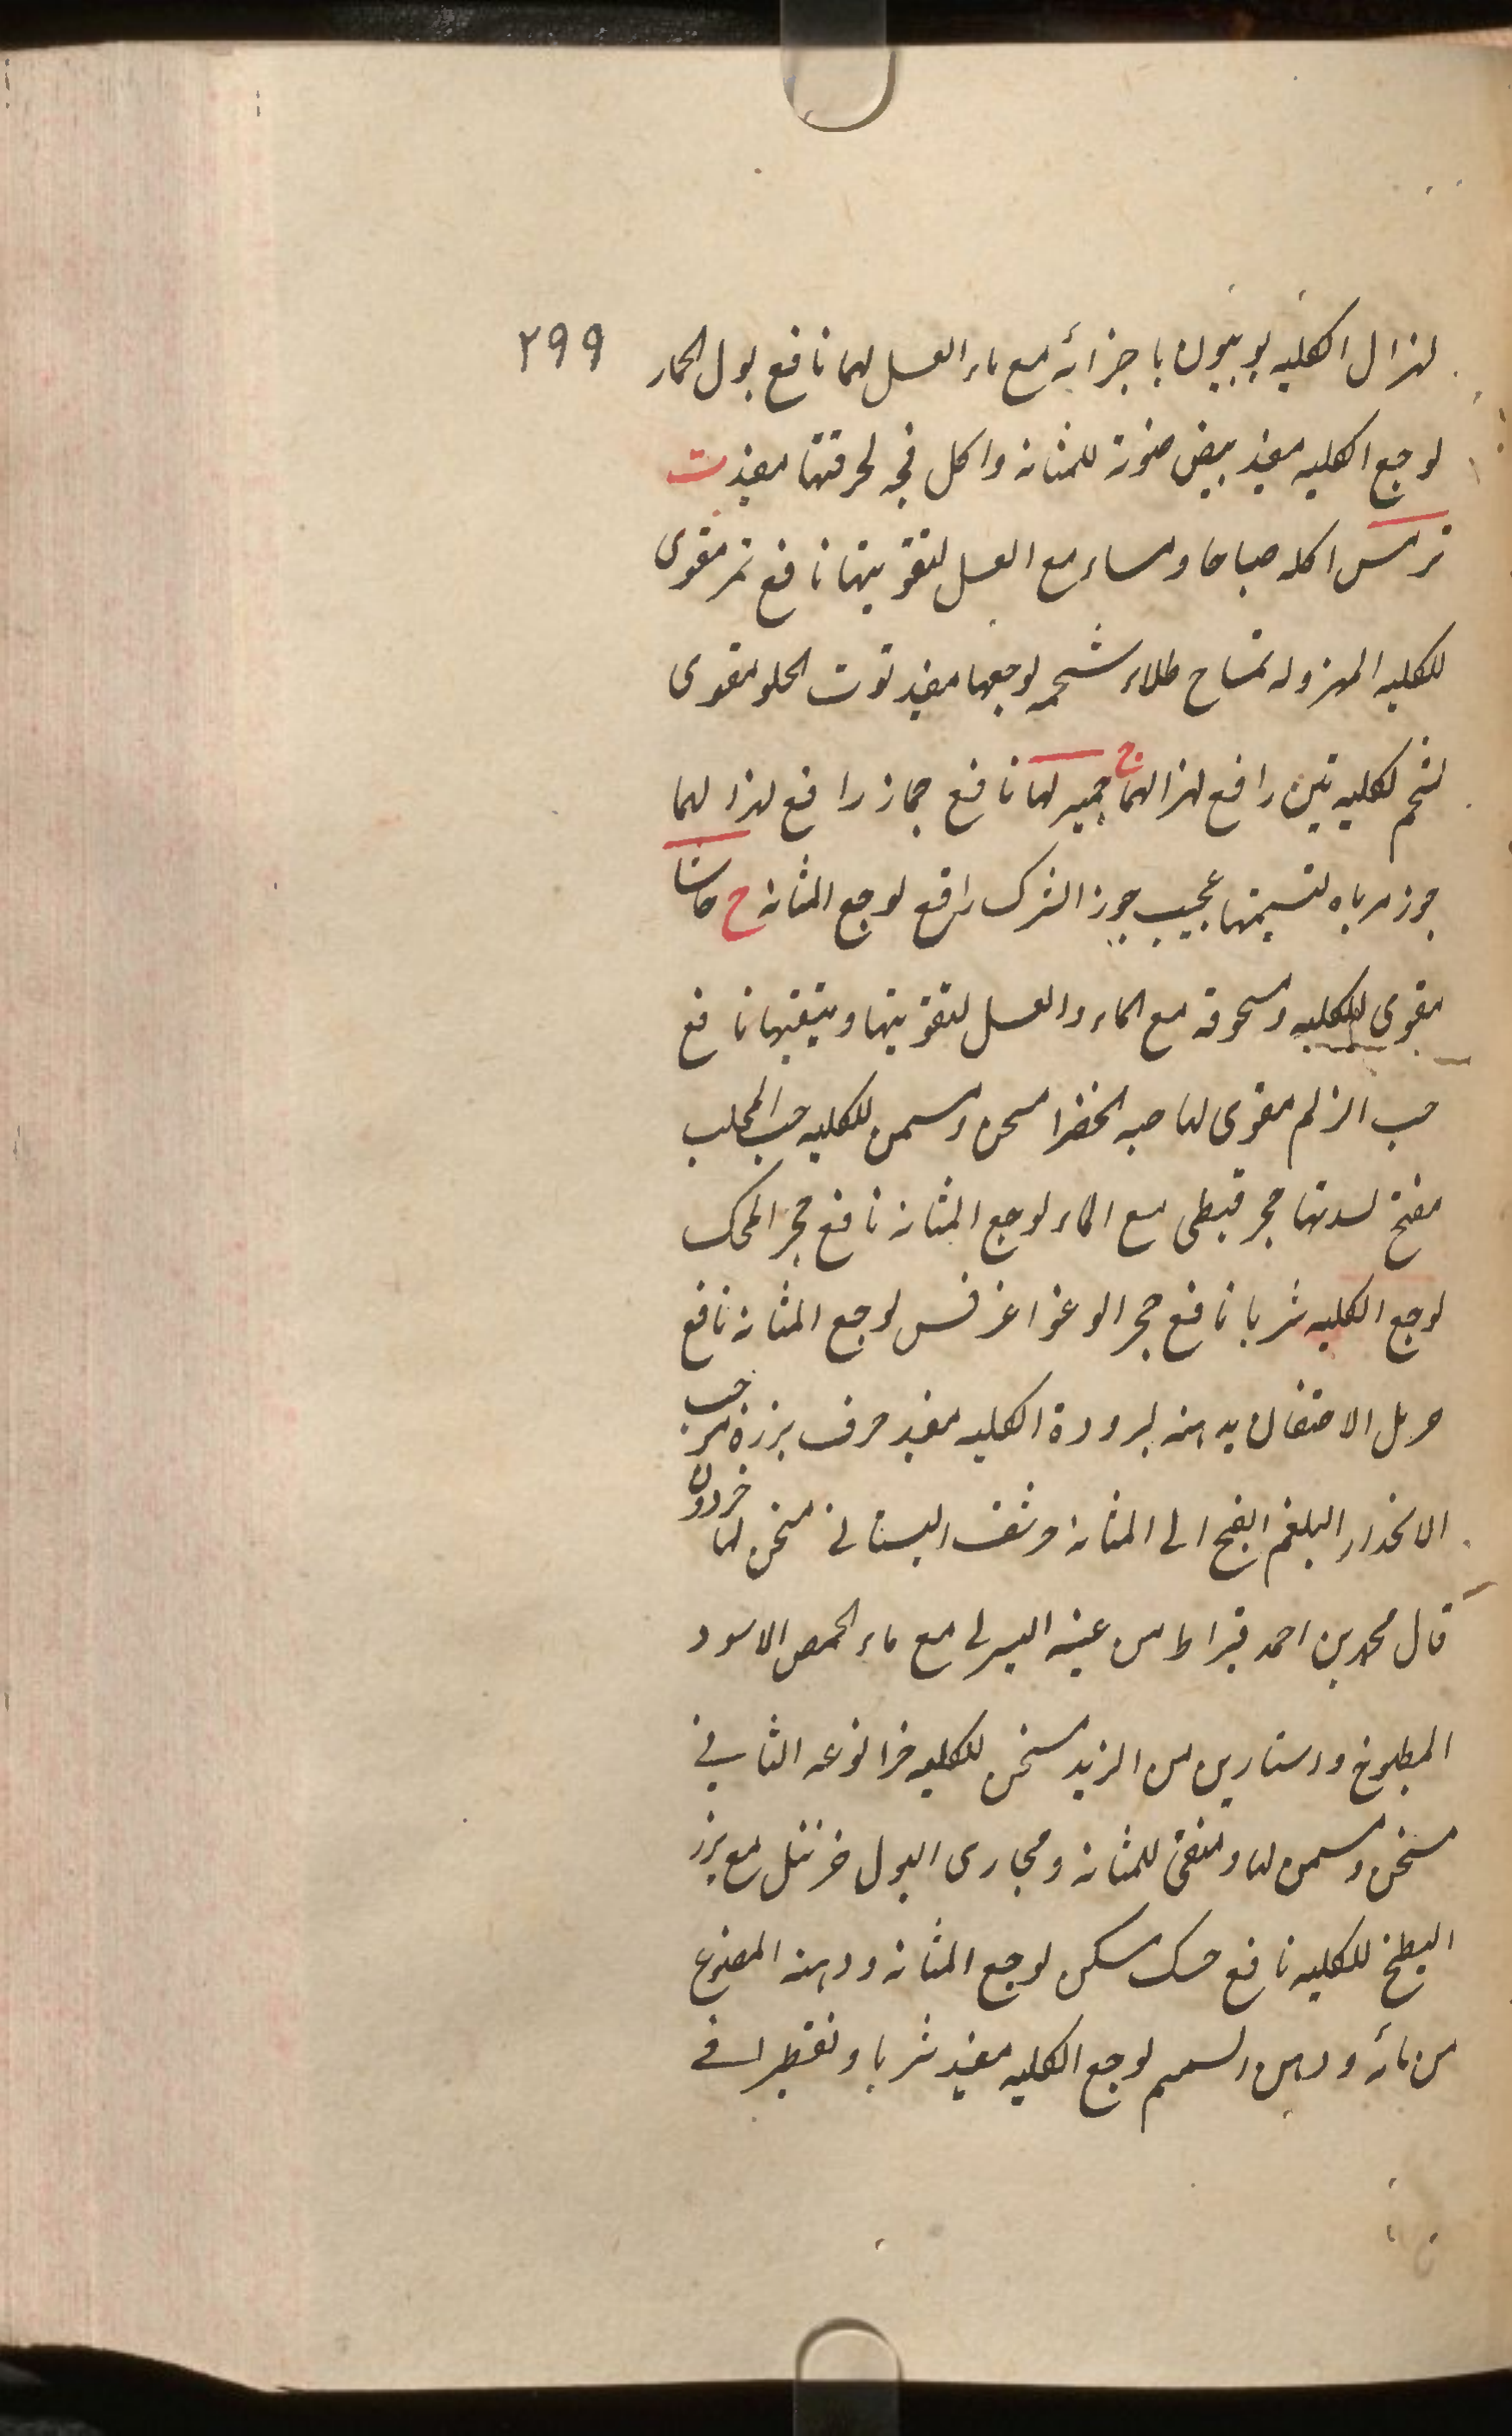 ٢٩٩
لهزال الكليه بوبيون باجزائه مع ماء العسل لهما نافع بول الحمار
لوجع الكليه مفيد بيض صفرته للمثانه واكل فجه لحرقتها مفيد ت
ترمس اكله صباحا ومساء مع العسل لتقويتها نافع تمر مقوى
للكليه المهزوله تمساح طلاء شحمه لوجعها مفيد توت الحلو مقوى
لشحم لكليه تين رافع لهزالهما ج جميز لهما نافع جماز رافع لهزالهما
جوز مرباه لتسمينها عجيب جوز الشرك رافع لوجع المثانه ح حاشا
مقوى للكليه ومسحوقه مع الماء والعسل لتقويتها وتنقيتها نافع
حب الزلم مقوى لها حبه الخضرا مسخن ومسمن للكليه حب المحلب
مفتح لسدتها حجر قبطى مع الماء لوجع المثانه نافع حجر المحك
لوجع الكليه شربا نافع حجر الوغواغرفس لوجع المثانه نافع
حرمل الاحتقان بدهنه لبرودة الكليه مفيد حرف بزره موجب
الانحدار البلغم الفج الى المثانه حرشف البستانى مسخن لها خردون
قال محمد بن احمد قيراط من عينه اليسرى مع ماء الحمص الاسود
المطبوخ واستارين من الزبد مسخن للكليه خزا نوعه الثانى
مسخن ومسمن لها ومنقى للمثانه ومجارى البول خرنثل مع بزر
البطيخ للكليه نافع حسك مسكن لوجع المثانه ودهنه المصنوع
من مائه ودهن السمسم لوجع الكليه مفيد شربا وتقطيرا فى